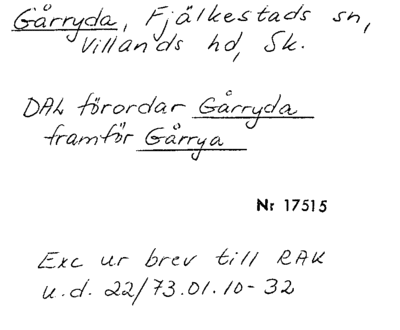 Gårryda, Fjälkestads sn,
Villands hd, Sk.
DAL förordar Gårryda
framför Gårrya
Nr 17515
Exc ur brev till RAK
u.d. 22/73.01.10-32